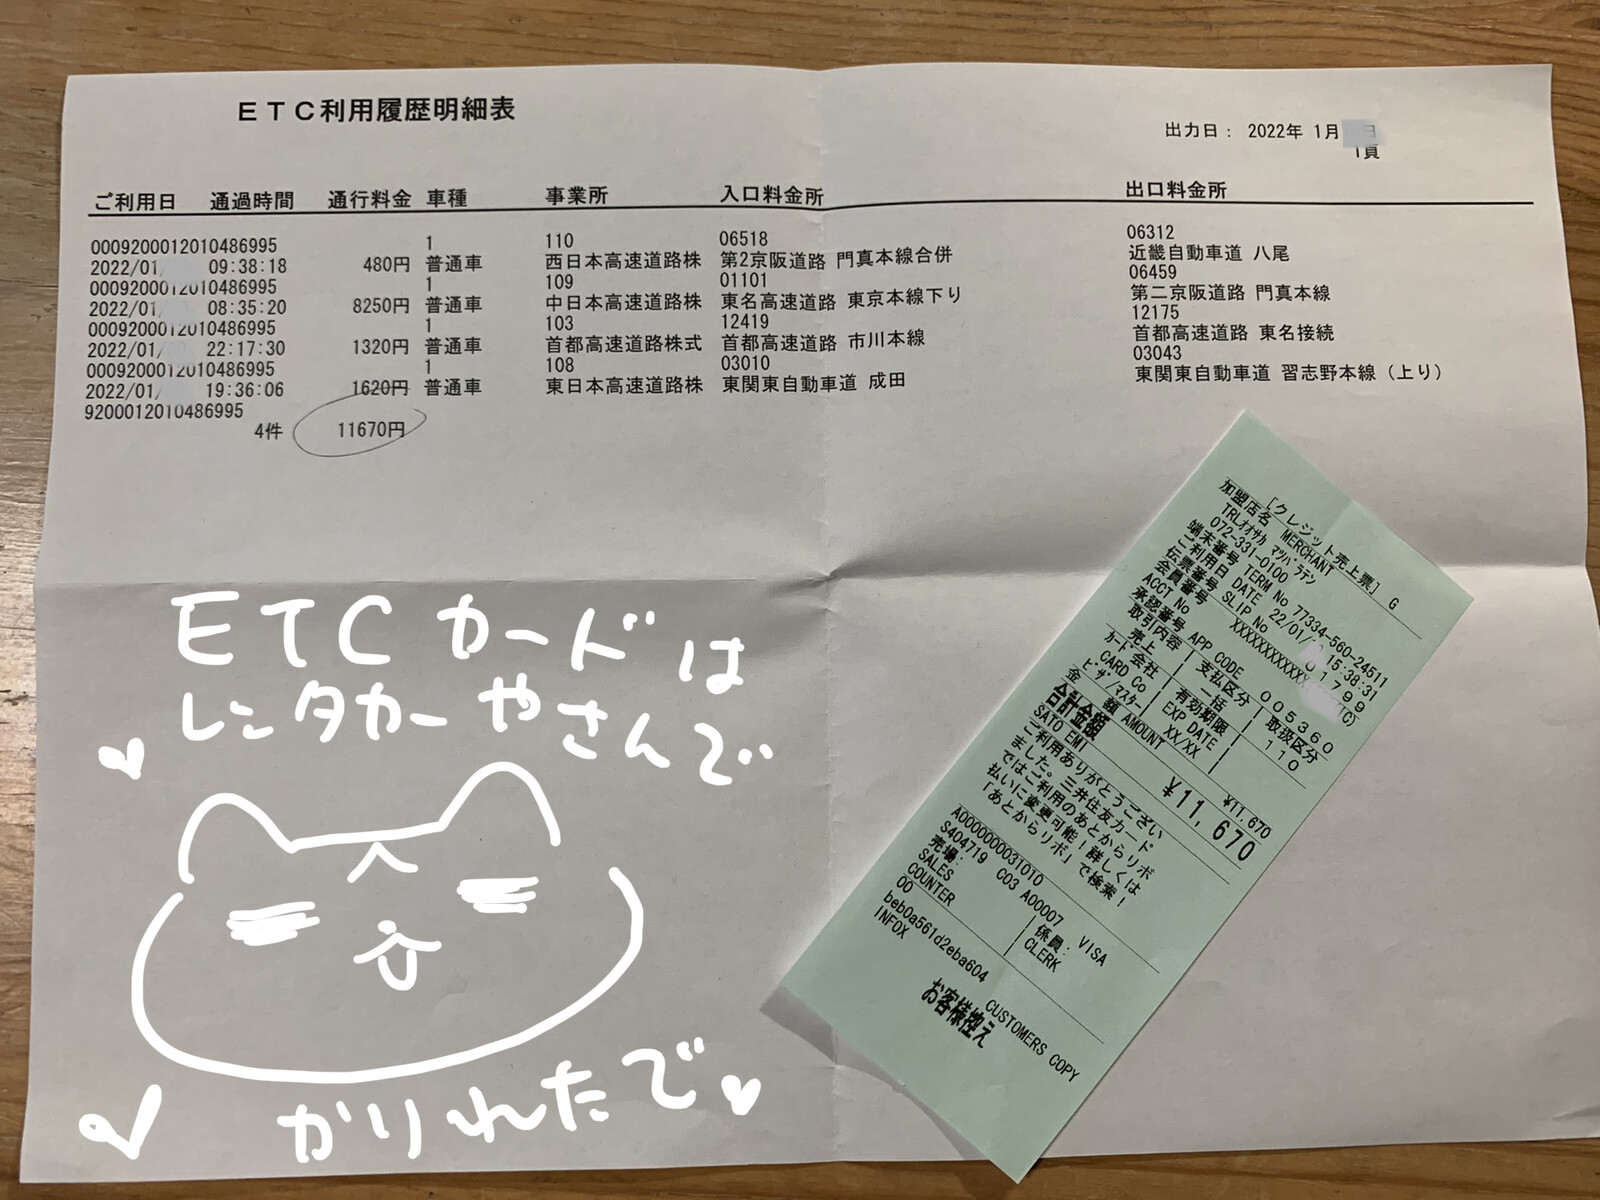 ETC利用履歴明細表
出力日： 2022年 1月 日
1頁
ご利用日 通過時間 通行料金 車種 事業所 入口料金所 出口料金所
0009200012010486995 1 110 06518 06312
2022/01/ 09:38:18 480円 普通車 西日本高速道路株 第2京阪道路 門真本線合併 近畿自動車道 八尾
0009200012010486995 1 109 01101 06459
2022/01/ 08:35:20 8250円 普通車 中日本高速道路株 東名高速道路 東京本線下り 第二京阪道路 門真本線
0009200012010486995 1 103 12419 12175
2022/01/ 22:17:30 1320円 普通車 首都高速道路株式 首都高速道路 市川本線 首都高速道路 東名接続
0009200012010486995 1 108 03010 03043
2022/01/ 19:36:06 1620円 普通車 東日本高速道路株 東関東自動車道 成田 東関東自動車道 習志野本線（上り）
9200012010486995
4件 11670円
ETCカードは
レンタカーやさんで
かりれたで
［クレジット売上票］ G
加盟店名 MERCHANT
TRLオオサカ マツバラテン
072-331-0100
端末番号 TERM No 77334-560-24511
ご利用日 DATE 22/01/ 15:38:31
伝票番号 SLIP No 0179
会員番号
ACCT No XXXXXXXXXXXX
承認番号 APP CODE 005360
取引内容 支払区分 取扱区分
売上 一括 110
カード会社 有効期限
CARD Co EXP DATE
ビザ/マスター XX/XX
金 額 AMOUNT ¥11,670
合計金額 ¥11,670
SATO EMI
ご利用ありがとうござい
ました。三井住友カード
ではご利用のあとからリボ
払いに変更可能！詳しくは
「あとからリボ」で検索！
A0000000031010 VISA
S404719 C03 A00007
売場： 係員：
SALES CLERK
COUNTER
00
beb0a561d2eba604
INFOX CUSTOMERS COPY
お客様控え